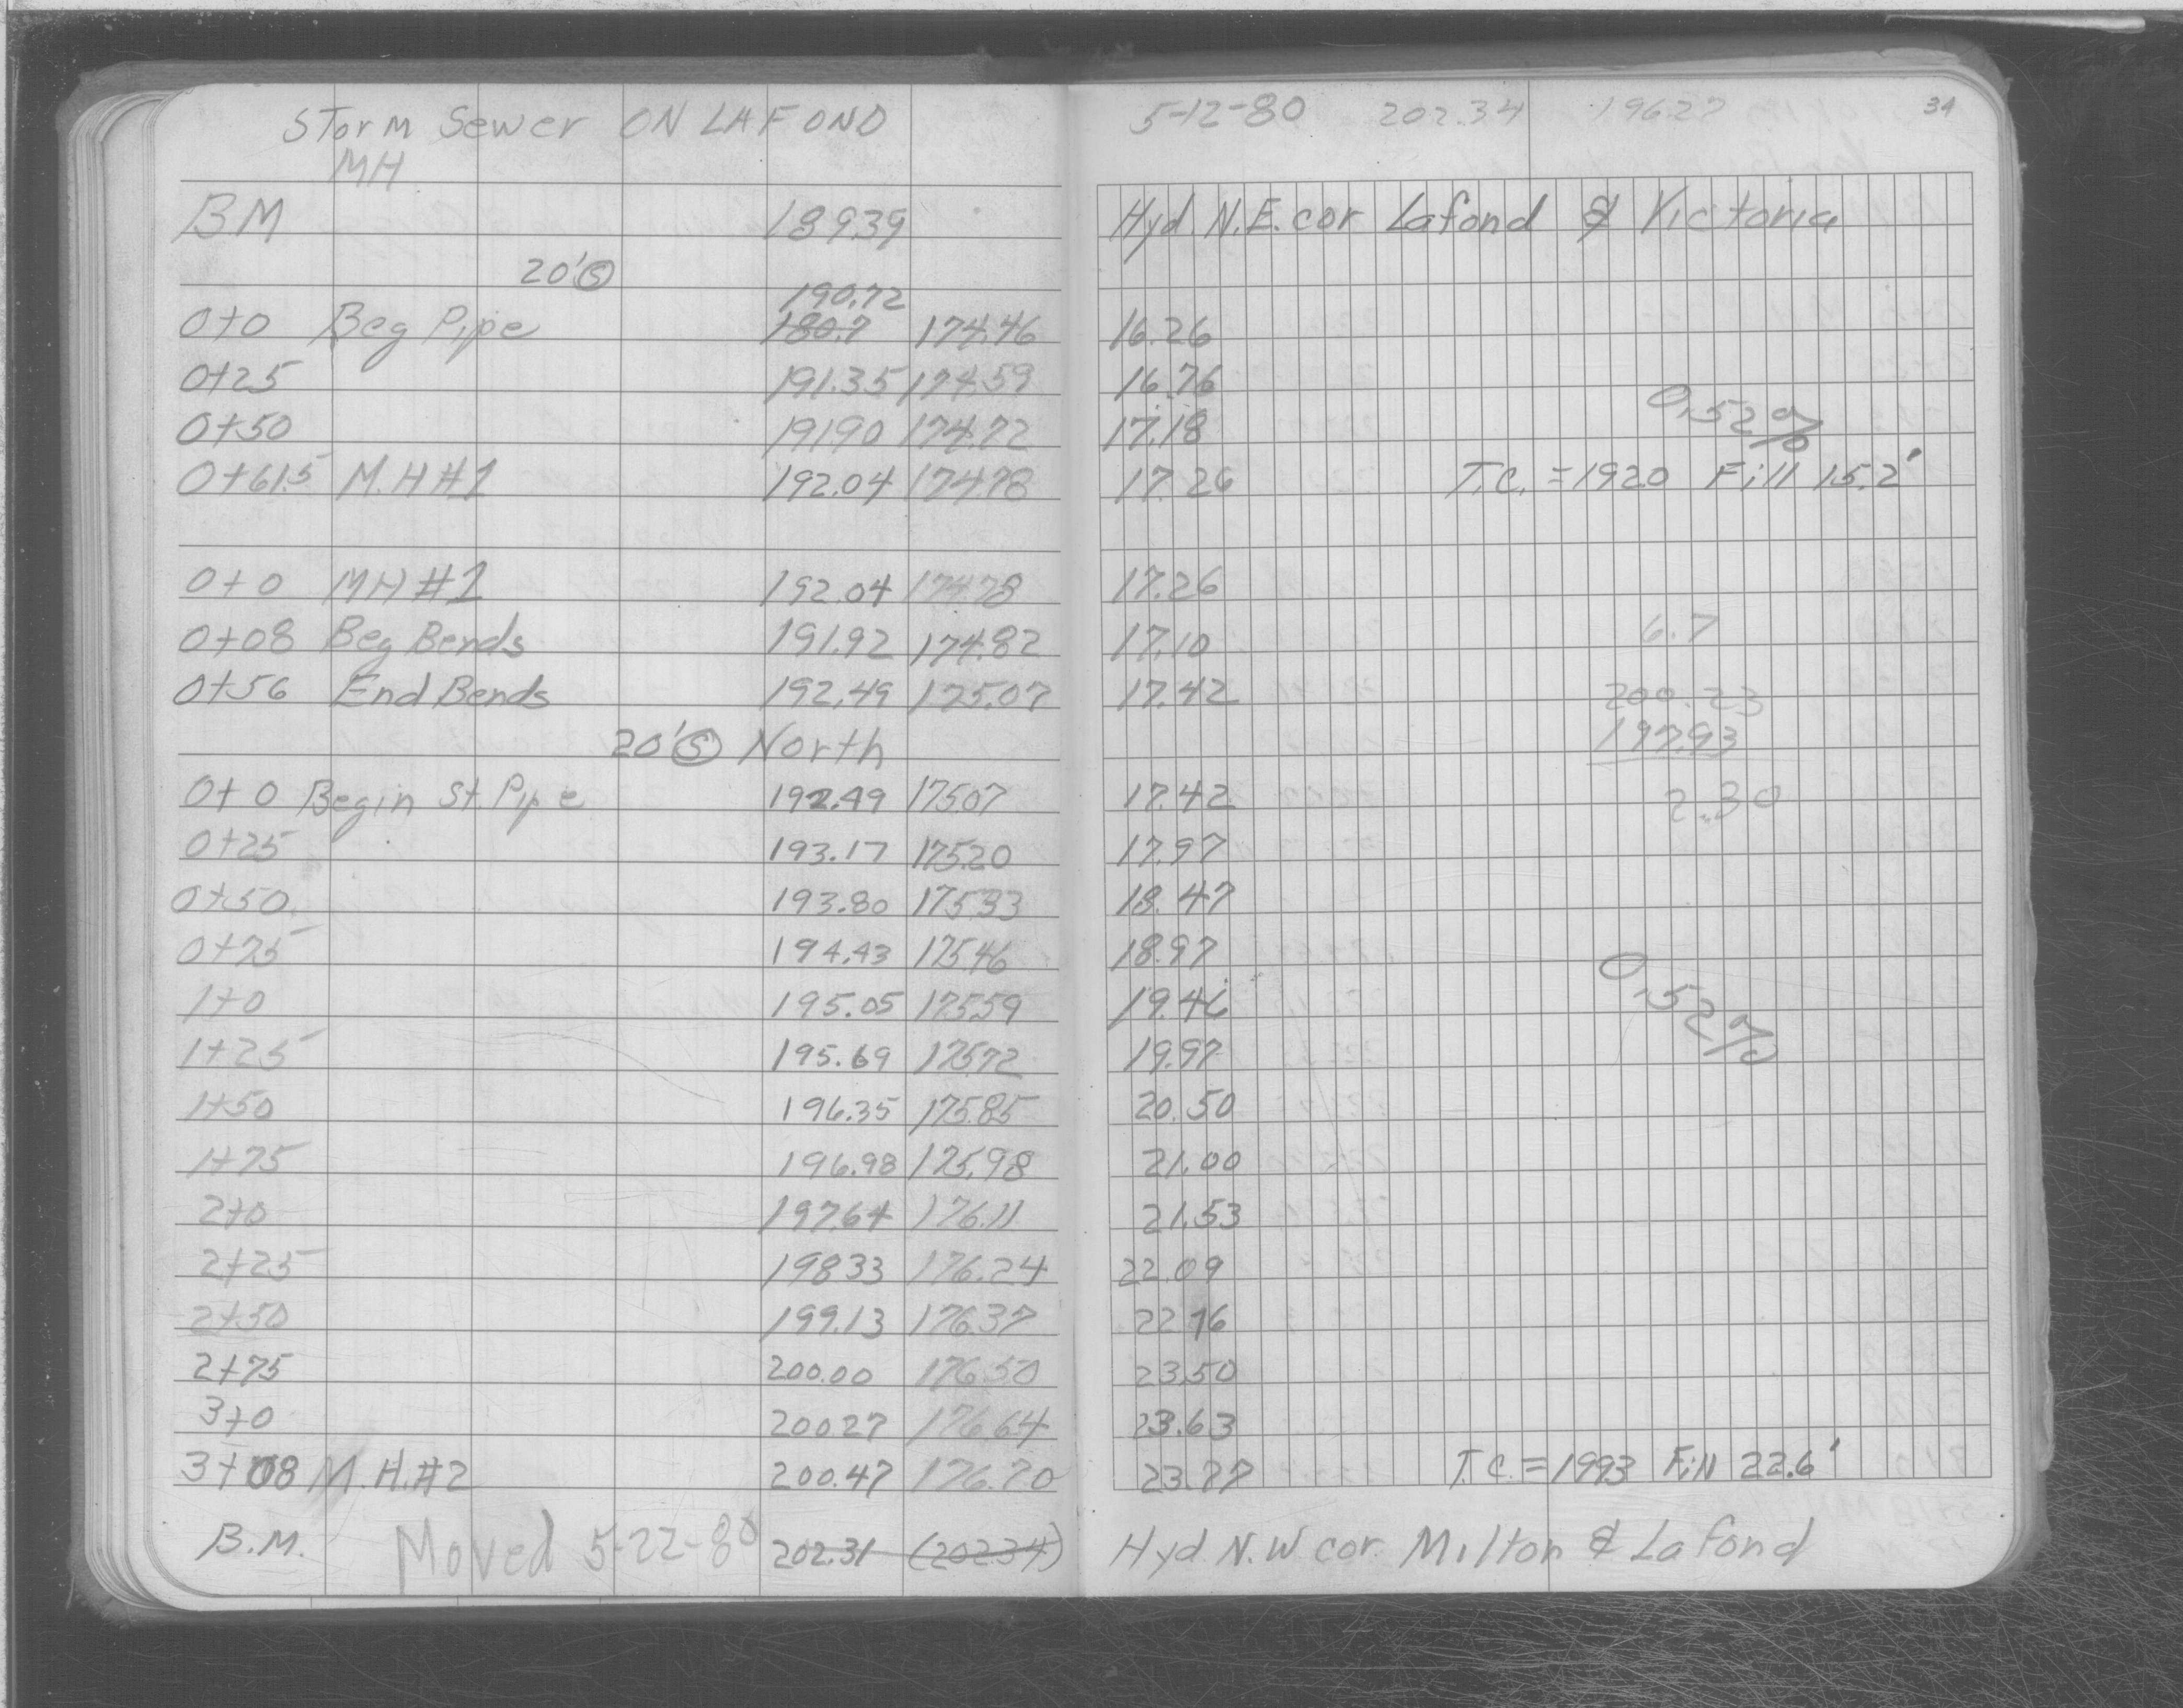 Storm Sewer ON LAFOND 5-12-80 202.34 196.27 34
MH
BM 189.39 Hyd. N.E. cor Lafond & Victoria
20' S
190.72
0+0 Beg Pipe 180.7 174.46 16.26
0+25 191.35 174.59 16.76
0+50 191.90 174.72 17.18 0.52%
0+61.5 M.H #1 192.04 174.78 17.26 T.C. = 192.0 Fill 15.2'
0+0 MH #1 192.04 174.78 17.26
0+08 Beg Bends 191.92 174.82 17.10 6.7
0+56 End Bends 192.49 175.07 17.42 200.23
20' S North 197.93
0+0 Begin St. Pipe 192.49 175.07 17.42 2.30
0+25 193.17 175.20 17.97
0+50 193.80 175.33 18.47
0+75 194.43 175.46 18.97
1+0 195.05 175.59 19.46 0.52%
1+25 195.69 175.72 19.97
1+50 196.35 175.85 20.50
1+75 196.98 175.98 21.00
2+0 197.64 176.11 21.53
2+25 198.33 176.24 22.09
2+50 199.13 176.37 22.76
2+75 200.00 176.50 23.50
3+0 200.27 176.64 23.63
3+08 M.H. #2 200.47 176.70 23.77 T.C. = 199.3 Fill 22.6'
B.M. Moved 5-22-80 202.31 (202.34) Hyd N.W cor. Milton & Lafond